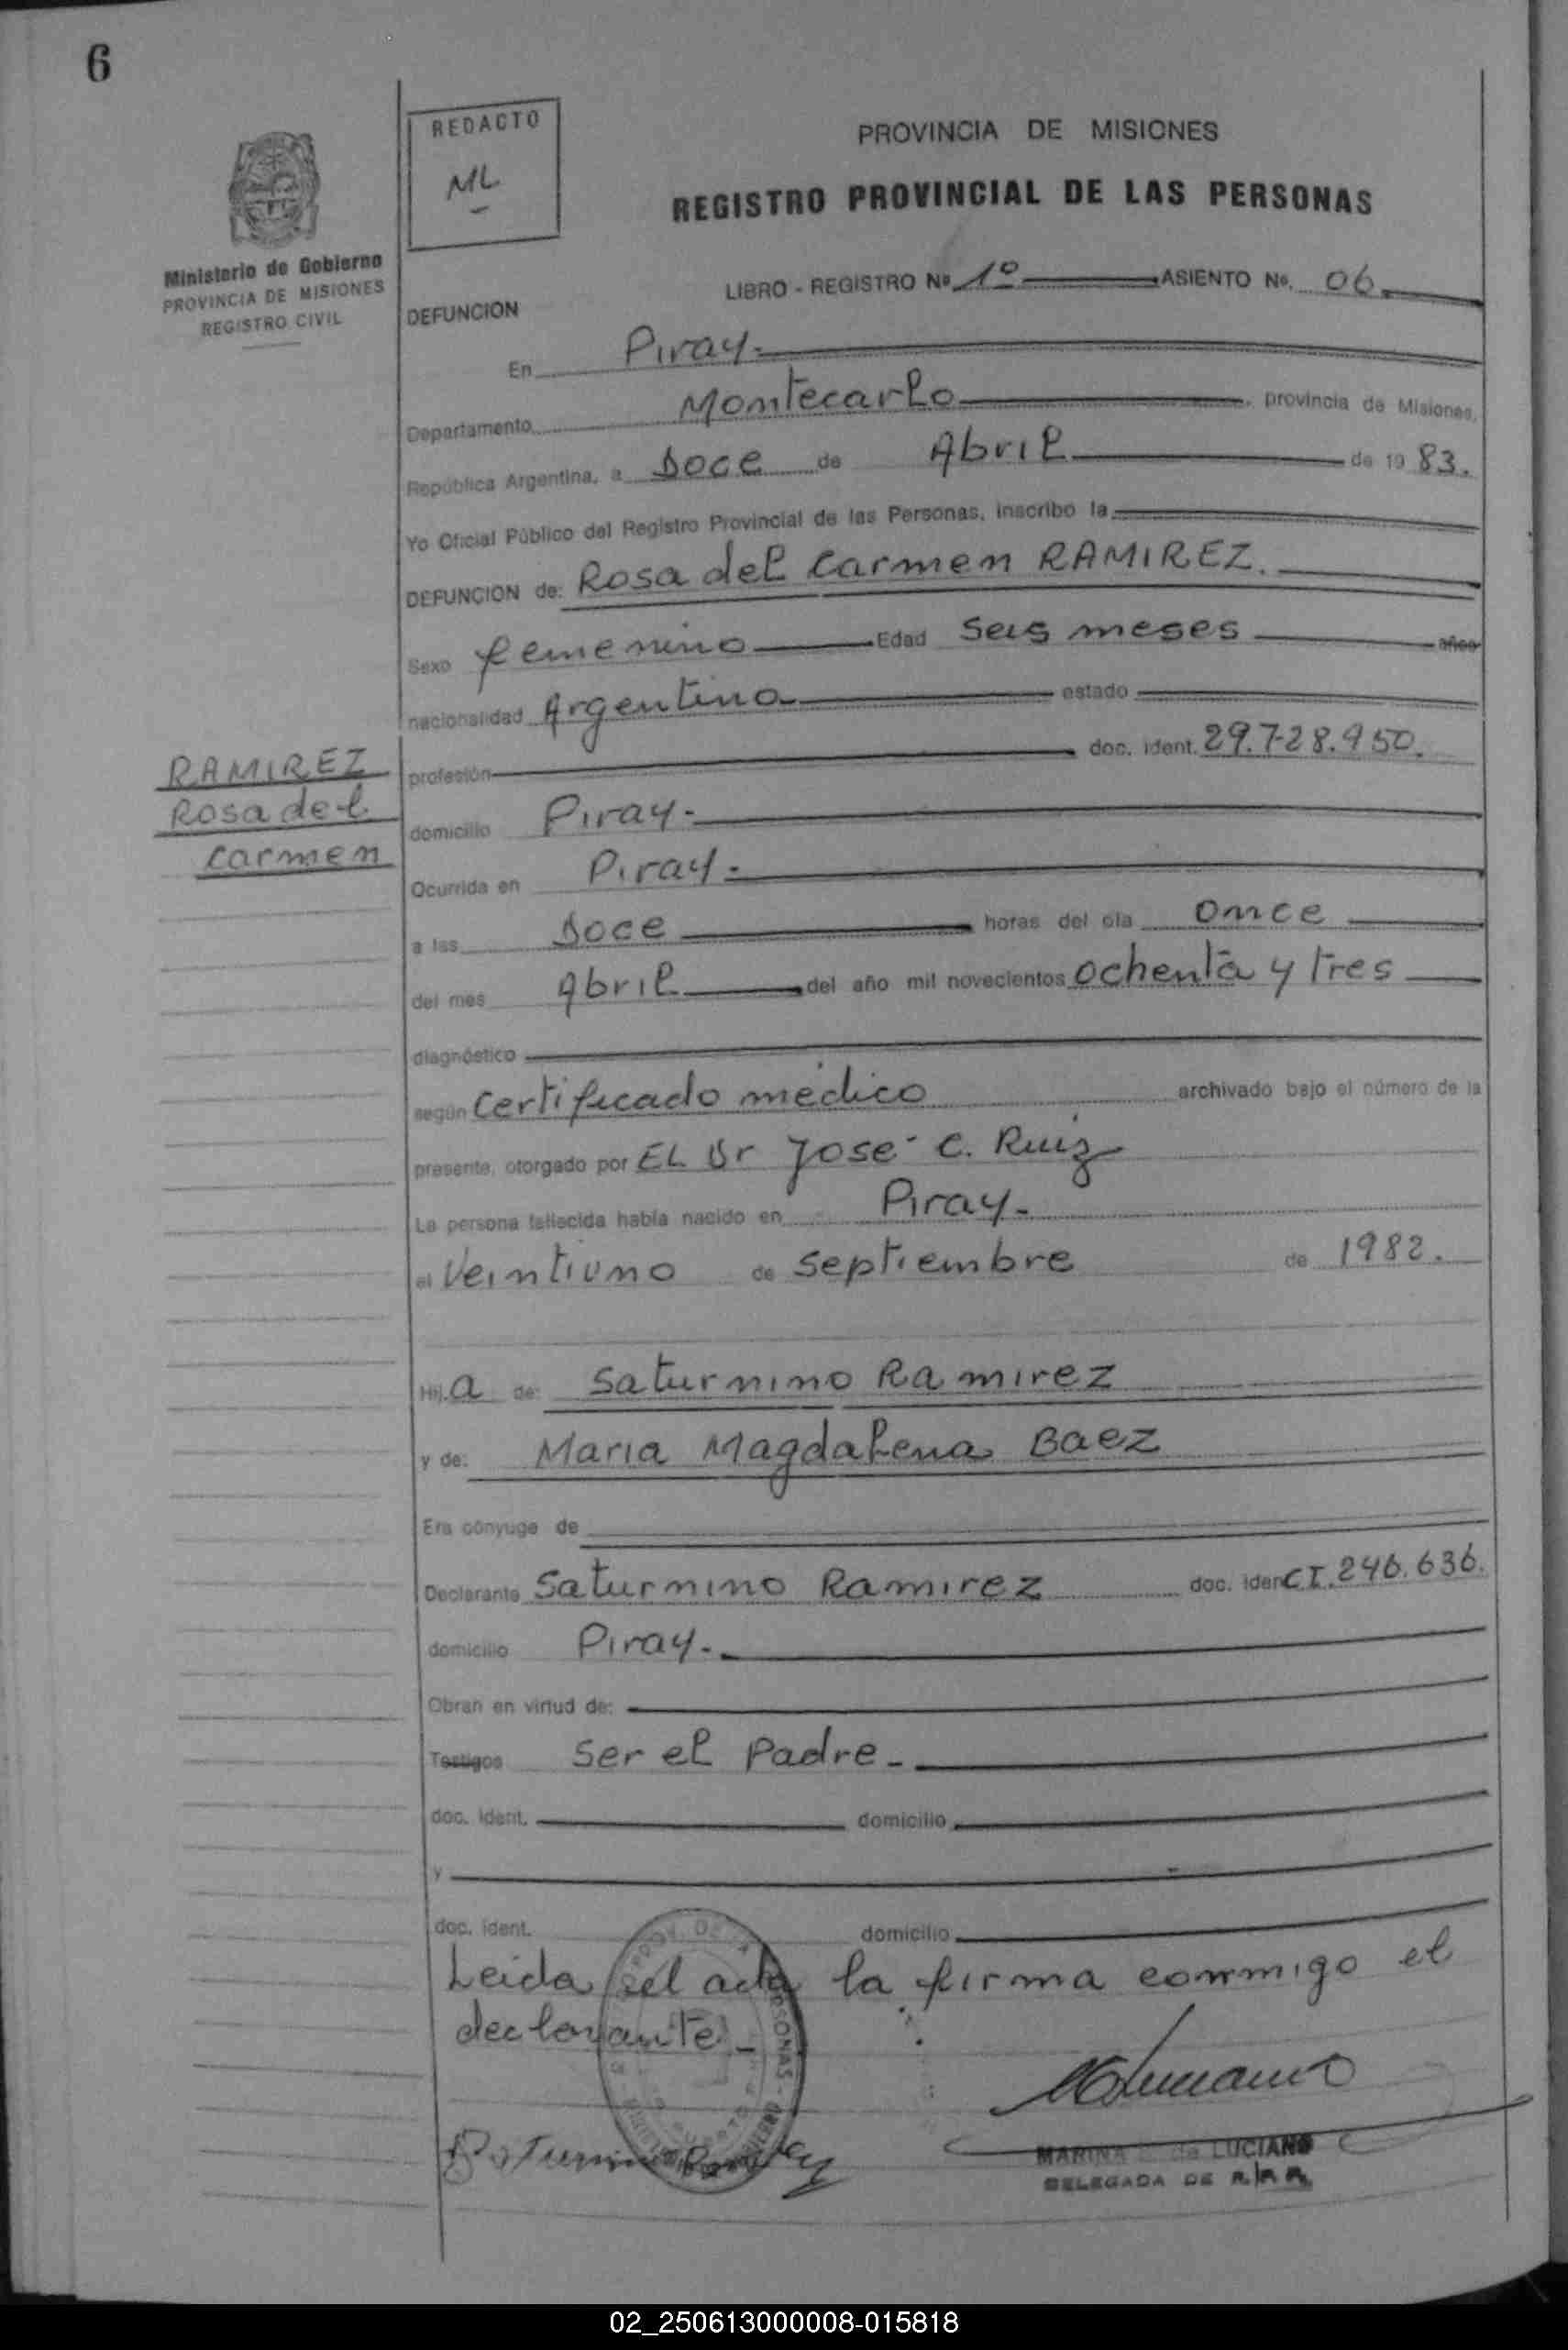 6
REDACTO
ML
Ministerio de Gobierno
PROVINCIA DE MISIONES
REGISTRO CIVIL
PROVINCIA DE MISIONES
REGISTRO PROVINCIAL DE LAS PERSONAS
LIBRO - REGISTRO Nº 1º ASIENTO Nº. 06
DEFUNCION
En Piray.
Departamento Montecarlo, provincia de Misiones,
República Argentina, a Doce de Abril de 19 83.
Yo Oficial Público del Registro Provincial de las Personas, inscribo la
DEFUNCION de: Rosa del Carmen RAMIREZ.
Sexo femenino Edad Seis meses años
nacionalidad Argentina estado
profesión doc. ident. 29.728.950.
RAMIREZ
Rosa del
Carmen
domicilio Piray.
Ocurrida en Piray.
a las Doce horas del día Once
del mes Abril del año mil novecientos ochenta y tres
diagnóstico
según Certificado médico archivado bajo el número de la
presente, otorgado por EL Dr José C. Ruiz
La persona fallecida había nacido en Piray.
el Veintiuno de Septiembre de 1982.
Hij.a de: Saturnino Ramirez
y de: Maria Magdalena Baez
Era cónyuge de
Declarante Saturnino Ramirez doc. iden CI. 246.636.
domicilio Piray.
Obran en virtud de:
Testigos Ser el Padre.
doc. ident. domicilio
y
doc. ident. domicilio
Leida el acta la firma conmigo el
declarante.
MARINA de LUCIANO
DELEGADA DE
02_250613000008-015818